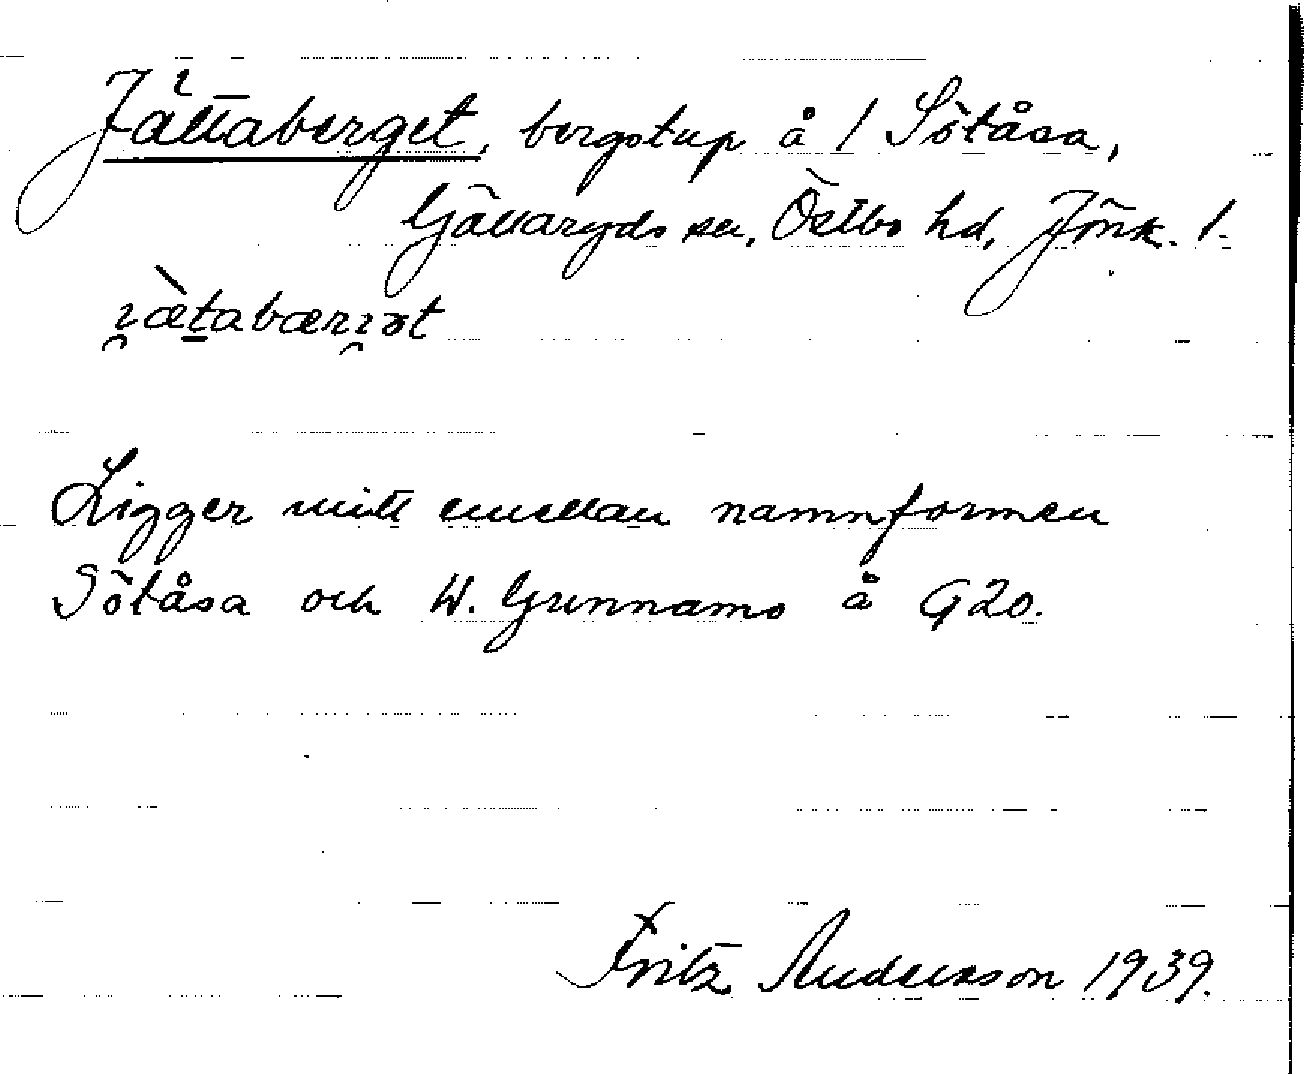 Jättaberget, bergstup å 1 Sötåsa,
Gällaryds sn, Östbo hd, Jönk. l.
i̯æ̀ṯabæri̯ət
Ligger mitt emellan namnformen
Sötåsa och W. Grennamo å G20.
Fritz Andersson 1939.